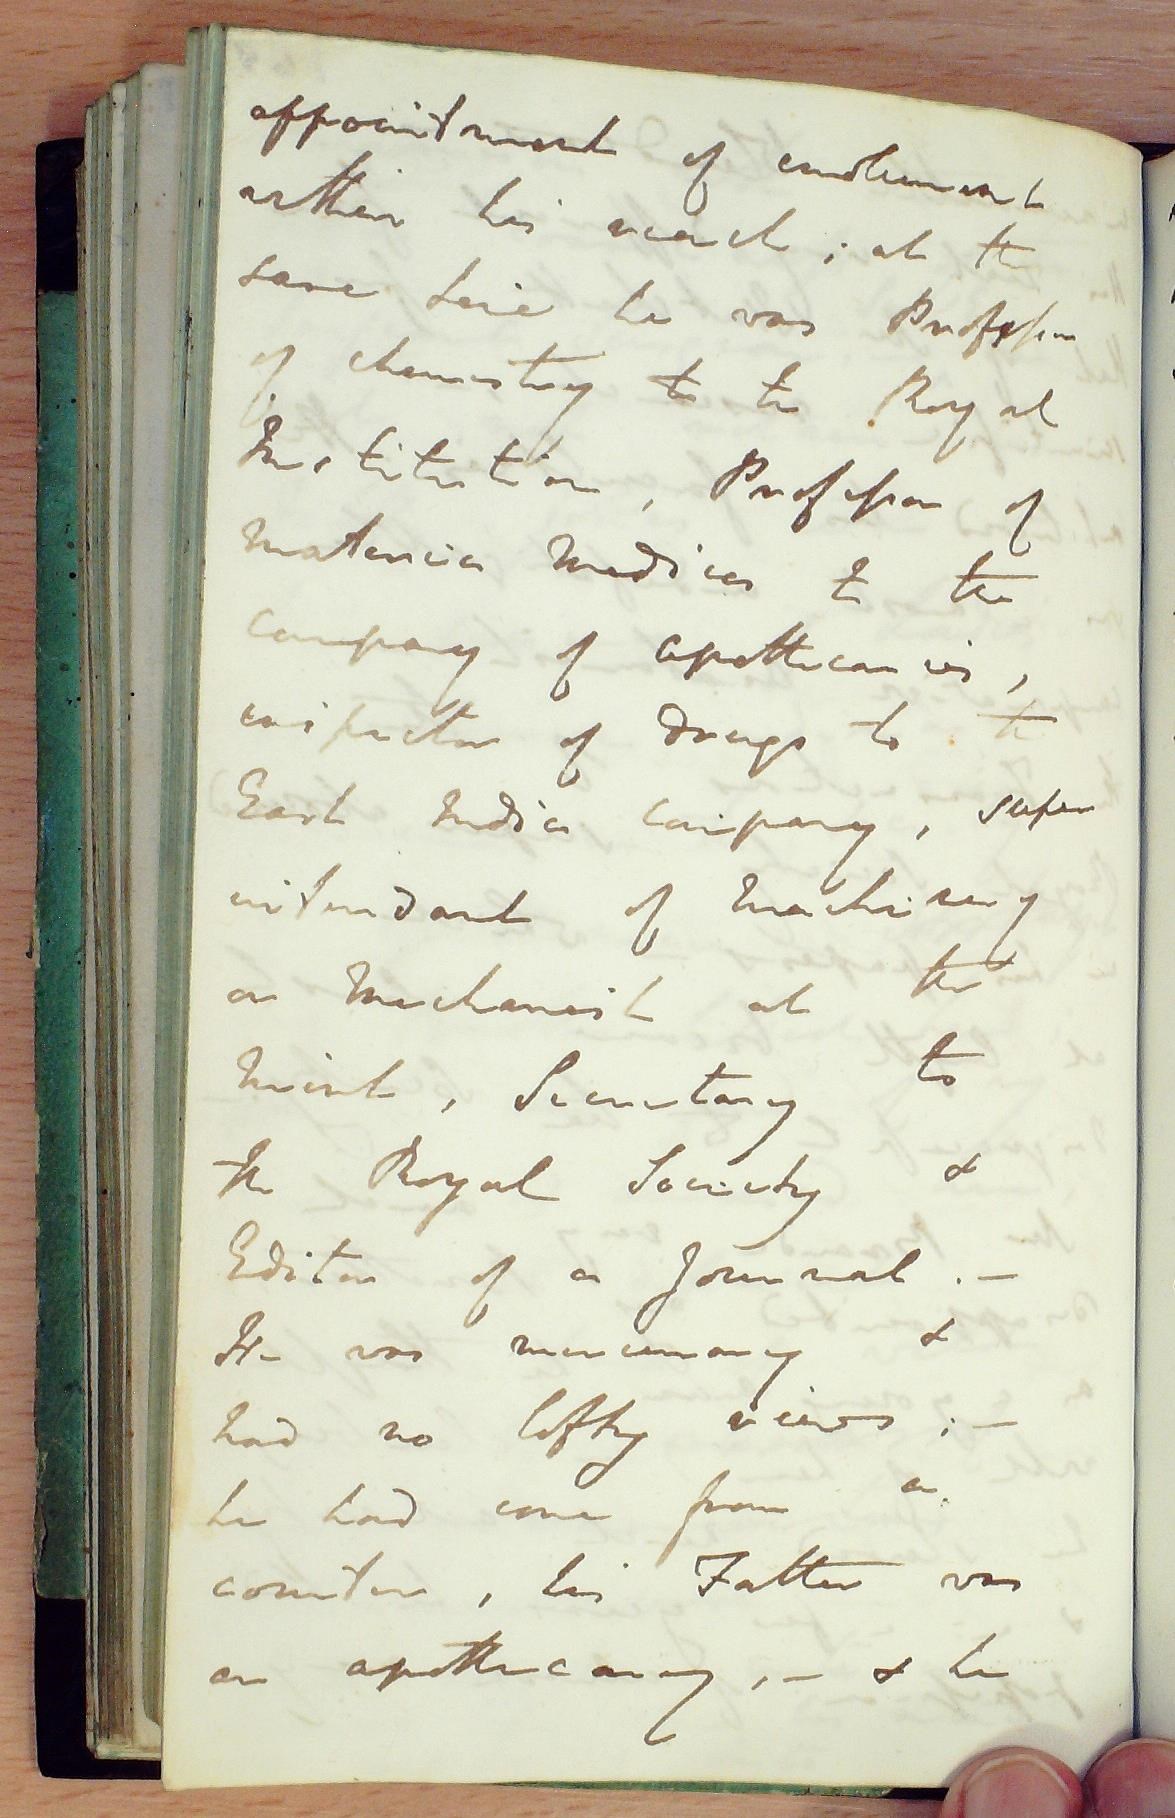 appointment of emolument
within his reach; at the
same time he was Professor
of chemistry to the Royal
Institution, Professor of
Materia Medica to the
Company of Apothecaries,
inspector of Drugs to the
East India Company, super
intendant of Machinery
or Mechanist at the
Mint, Secretary to
the Royal Society &
Editor of a Journal. —
He was mercenary &
had no lofty views; —
he had come from a
counter, his Father was
an apothecary, — & he